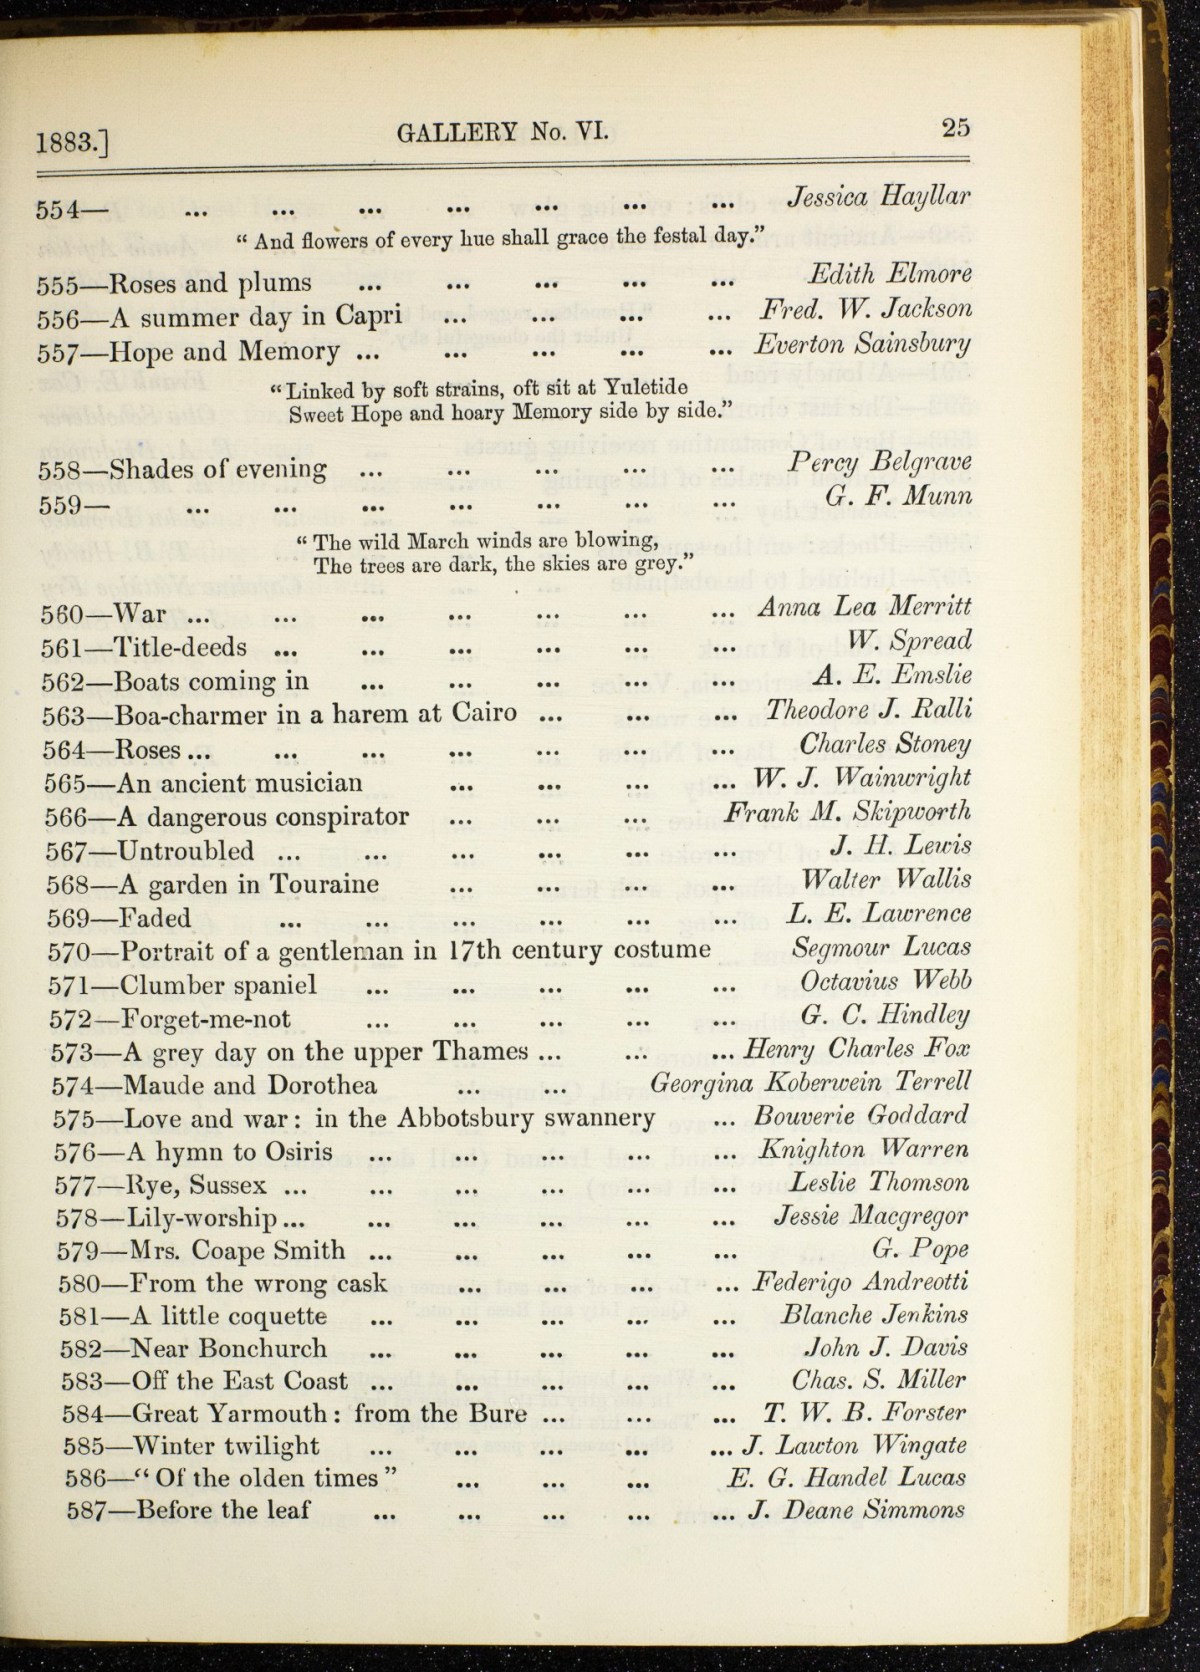 1883.] GALLERY No. VI. 25
554— ... ... ... ... ... ... ... Jessica Hayllar
“ And flowers of every hue shall grace the festal day.”
555—Roses and plums ... ... ... ... ... Edith Elmore
556—A summer day in Capri ... ... ... ... Fred. W. Jackson
557—Hope and Memory ... ... ... ... ... Everton Sainsbury
“ Linked by soft strains, oft sit at Yuletide
Sweet Hope and hoary Memory side by side.”
558—Shades of evening ... ... ... ... ... Percy Belgrave
559— ... ... ... ... ... ... ... G. F. Munn
“ The wild March winds are blowing,
The trees are dark, the skies are grey.”
560—War ... ... ... ... ... ... ... Anna Lea Merritt
561—Title-deeds ... ... ... ... ... ... W. Spread
562—Boats coming in ... ... ... ... ... A. E. Emslie
563—Boa-charmer in a harem at Cairo ... ... ... Theodore J. Ralli
564—Roses ... ... ... ... ... ... ... Charles Stoney
565—An ancient musician ... ... ... ... W. J. Wainwright
566—A dangerous conspirator ... ... ... Frank M. Skipworth
567—Untroubled ... ... ... ... ... ... J. H. Lewis
568—A garden in Touraine ... ... ... ... Walter Wallis
569—Faded ... ... ... ... ... ... L. E. Lawrence
570—Portrait of a gentleman in 17th century costume Segmour Lucas
571—Clumber spaniel ... ... ... ... ... Octavius Webb
572—Forget-me-not ... ... ... ... ... G. C. Hindley
573—A grey day on the upper Thames ... ... ... Henry Charles Fox
574—Maude and Dorothea ... ... Georgina Koberwein Terrell
575—Love and war: in the Abbotsbury swannery ... Bouverie Goddard
576—A hymn to Osiris ... ... ... ... ... Knighton Warren
577—Rye, Sussex ... ... ... ... ... ... Leslie Thomson
578—Lily-worship ... ... ... ... ... ... Jessie Macgregor
579—Mrs. Coape Smith ... ... ... ... ... G. Pope
580—From the wrong cask ... ... ... ... Federigo Andreotti
581—A little coquette ... ... ... ... ... Blanche Jenkins
582—Near Bonchurch ... ... ... ... ... John J. Davis
583—Off the East Coast ... ... ... ... ... Chas. S. Miller
584—Great Yarmouth: from the Bure ... ... ... T. W. B. Forster
585—Winter twilight ... ... ... ... ... J. Lawton Wingate
586—“ Of the olden times ” ... ... ... E. G. Handel Lucas
587—Before the leaf ... ... ... ... ... J. Deane Simmons